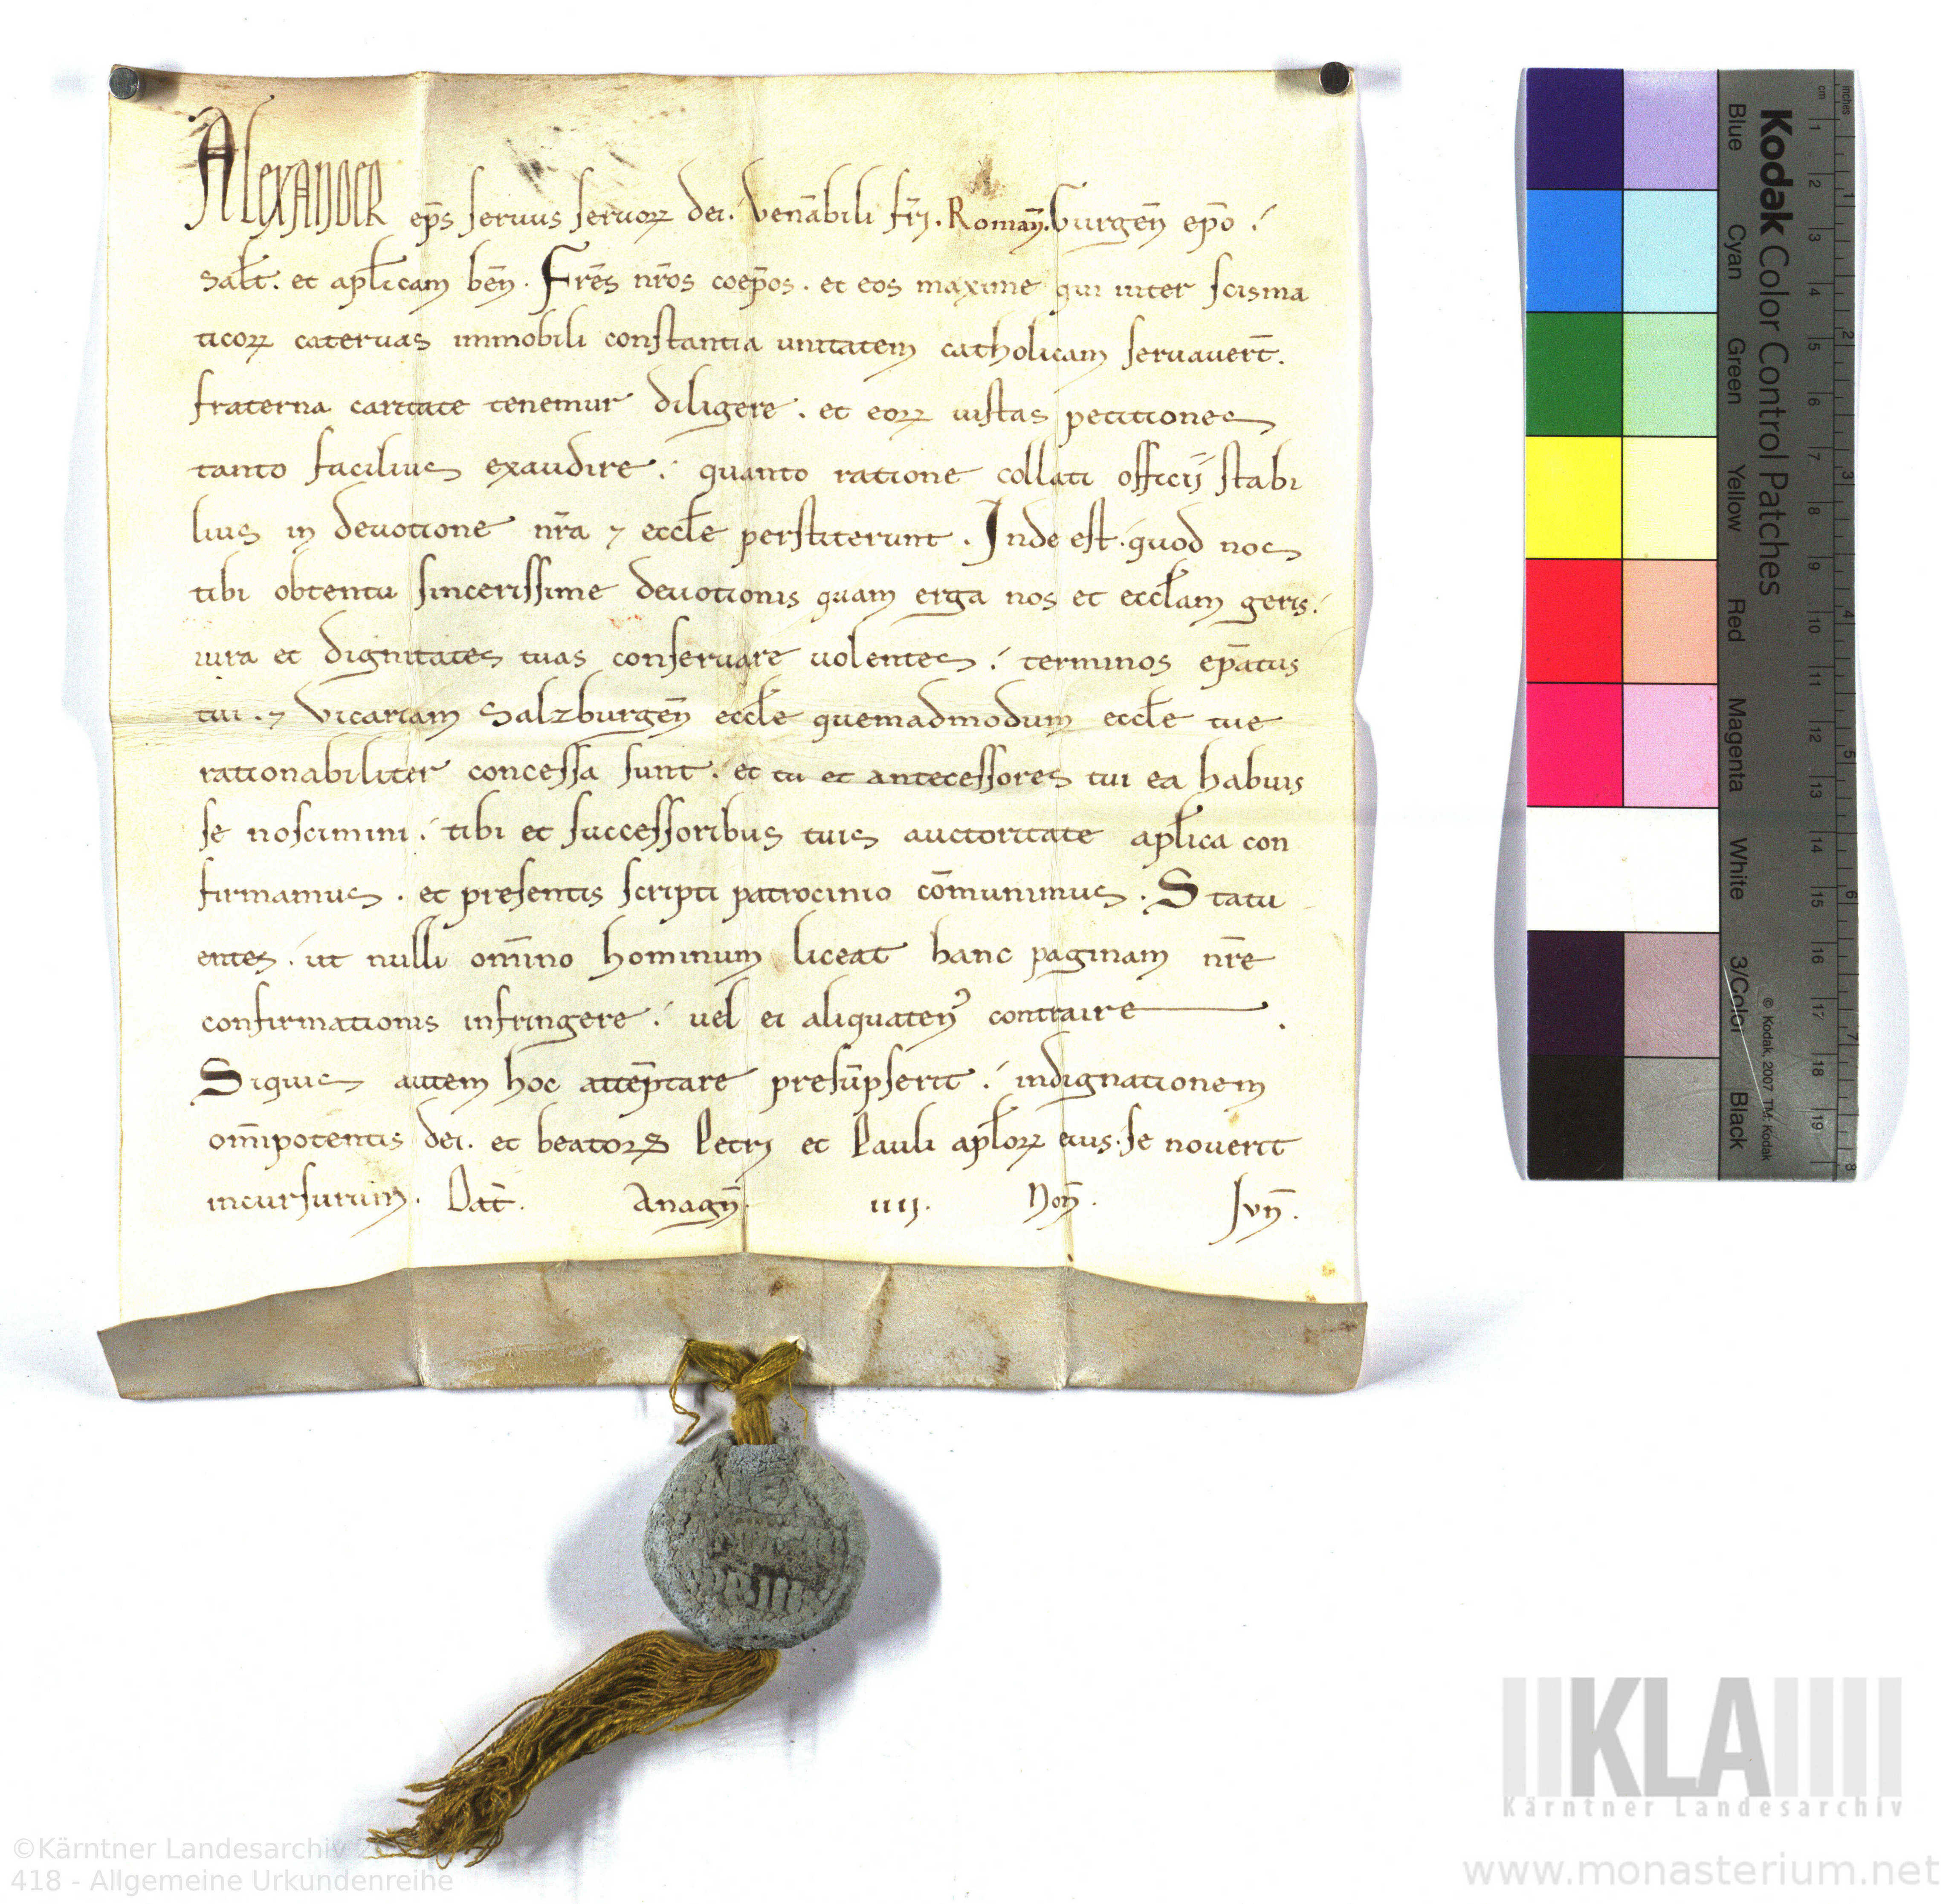 ALEXANDER ep̄s seruus seruoꝝ dei. Venābili fr̄i. Roman̄. Gurgen̄ ep̄o.
Sal̄t. et ap̄licam ben̄. Fr̄es nr̄os coep̄os. et eos maxime qui inter scisma
ticoꝝ cateruas immobili constantia unitatem catholicam seruauer̄t.
fraterna caritate tenemur diligere. et eoꝝ iustas petitiones
tanto facilius exaudire. quanto ratione collati officij stabi
lius in deuotione nr̄a ⁊ eccl̄e perstiterunt. Inde est. quod nos
tibi obtentu sincerissime deuotionis quam erga nos et eccl̄am geris.
iura et dignitates tuas conseruare uolentes. terminos ep̄atus
tui. ⁊ Vicariam Salzburgen̄ eccl̄e quemadmodum eccl̄e tue
rationabiliter concessa sunt. et tu et antecessores tui ea habuis
se noscimini. tibi et successoribus tuis auctoritate ap̄lica con
firmamus. et presentis scripti patrocinio cōmunimus. Statu
entes. ut nulli om̄ino hominum liceat hanc paginam nr̄e
confirmationis infringere. uel ei aliquatenꝰ contraire.
Siquis autem hoc attēptare presūpserit. indignationem
om̄ipotentis dei. et beatoꝝ Petri et Pauli ap̄loꝝ eius. se nouerit
incursurum. Dat̄. Anagn̄. iiij. Non̄. Jun̄.
Kodak Color Control Patches
Blue Cyan Green Yellow Red Magenta White 3/Color Black
© Kodak, 2007 TM: Kodak
cm 1 2 3 4 5 6 7 8 9 10 11 12 13 14 15 16 17 18 19
inches 1 2 3 4 5 6 7 8
KLA
Kärntner Landesarchiv
©Kärntner Landesarchiv
418 - Allgemeine Urkundenreihe
www.monasterium.net